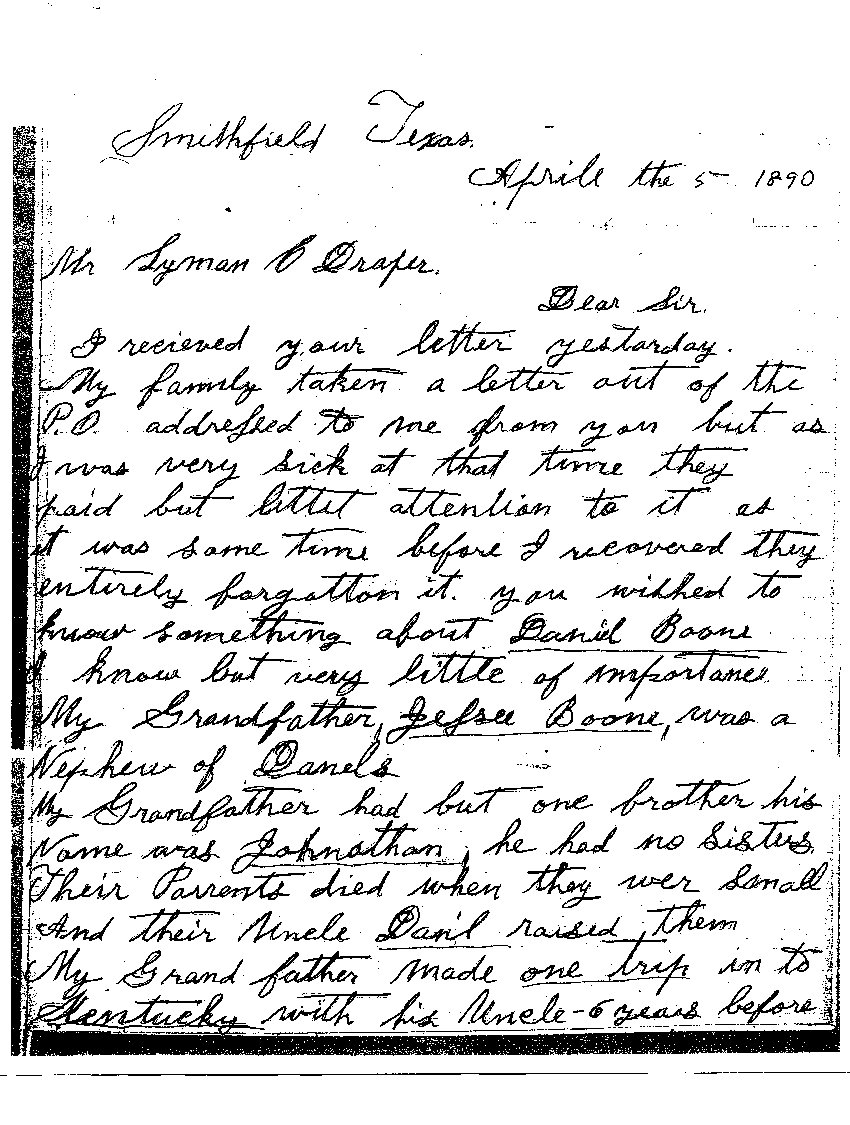 Smithfield Texas.
Aprile the 5 1890
Mr Lyman C Draper.
Dear Sir.
I recieved your letter yestarday.
My family taken a letter out of the
P.O. addressed to me from you but as
I was very sick at that time they
paid but littit attention to it as
it was some time before I recovered they
entirely forgotton it. you wished to
know something about Daniel Boone
I know but very little of importance
My Grandfather, Jessee Boone, was a
Nephew of Danels
My Grandfather had but one brother his
Name was Johnathan, he had no sisters
Their Parrents died when they wer small
And their Uncle Dan'l raised them
My Grand father made one trip in to
Kentucky with his Uncle - 6 years before